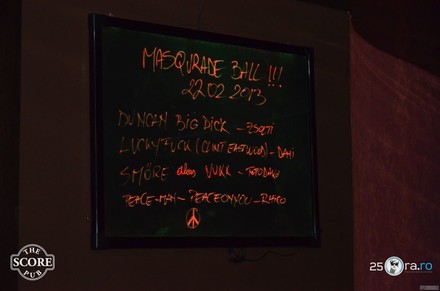 MASQURADE BALL !!!
22.02.2013
DUNCAN BIG DICK - ZSOTI
LUCKYFUCK (CLINT EASTWOOD) - DANI
SMÖRE NUKK -
PEACE-MAN - PEACEONYOU -
THE
SCORE
PUB
25 ra.ro